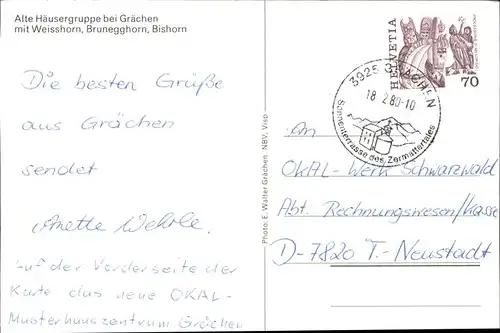 Alte Häusergruppe bei Grächen
mit Weisshorn, Brunegghorn, Bishorn
Die besten Grüße
aus Grächen
sendet
Anette Wehrle.
Auf der Vorderseite der
Karte das neue OKAL-
Musterhauszentrum Grächen
Photo: E. Walter Grächen NBV, Visp
HELVETIA
70
3925 GRÄCHEN
18.2.80-10
Sonnenterrasse des Zermattertales
An
OKAL-Werk Schwarzwald
Abt. Rechnungswesen/Kasse
D-7820 T.-Neustadt